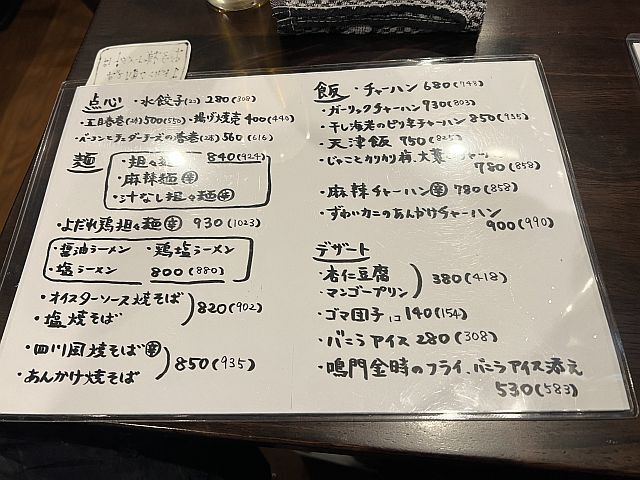 点心 ・水餃子(2コ) 280(308)
・五目春巻(2本)500(550) ・揚げ焼売 400(440)
・ベーコンとチェダーチーズの春巻(2本) 560(616)
麺
・担々麺 840(924)
・麻辣麺 辛
・汁なし担々麺 辛
・よだれ鶏担々麺 辛 930(1023)
・醤油ラーメン ・鶏塩ラーメン
・塩ラーメン 800(880)
・オイスターソース焼そば
・塩焼そば
820(902)
・四川風焼そば 辛
・あんかけ焼そば
850(935)
飯 ・チャーハン 680(748)
・ガーリックチャーハン 930(803)
・干し海老のピリ辛チャーハン 850(935)
・天津飯 750(825)
・じゃことカリカリ梅、大葉のチャーハン
780(858)
・麻辣チャーハン 辛 780(858)
・ずわいカニのあんかけチャーハン
900(990)
デザート
・杏仁豆腐
・マンゴープリン
380(418)
・ゴマ団子 1コ 140(154)
・バニラアイス 280(308)
・鳴門金時のフライ、バニラアイス添え
530(583)